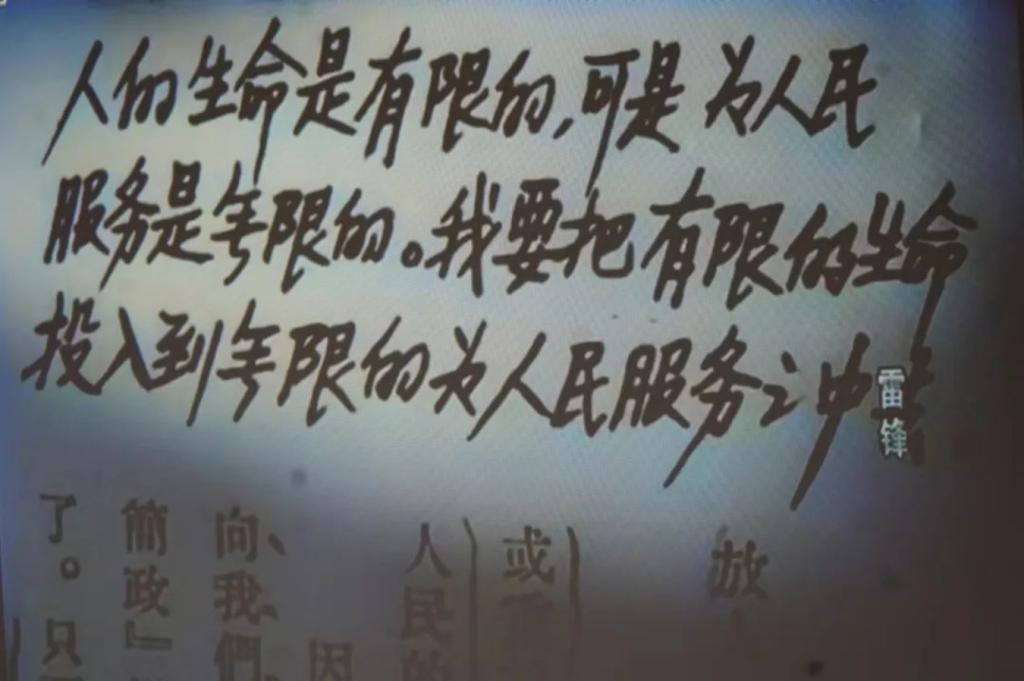 人的生命是有限的,可是为人民
服务是无限的。我要把有限的生命
投入到无限的为人民服务之中
雷锋
放
或
人民的
因
向、我、們
简政』
了。只